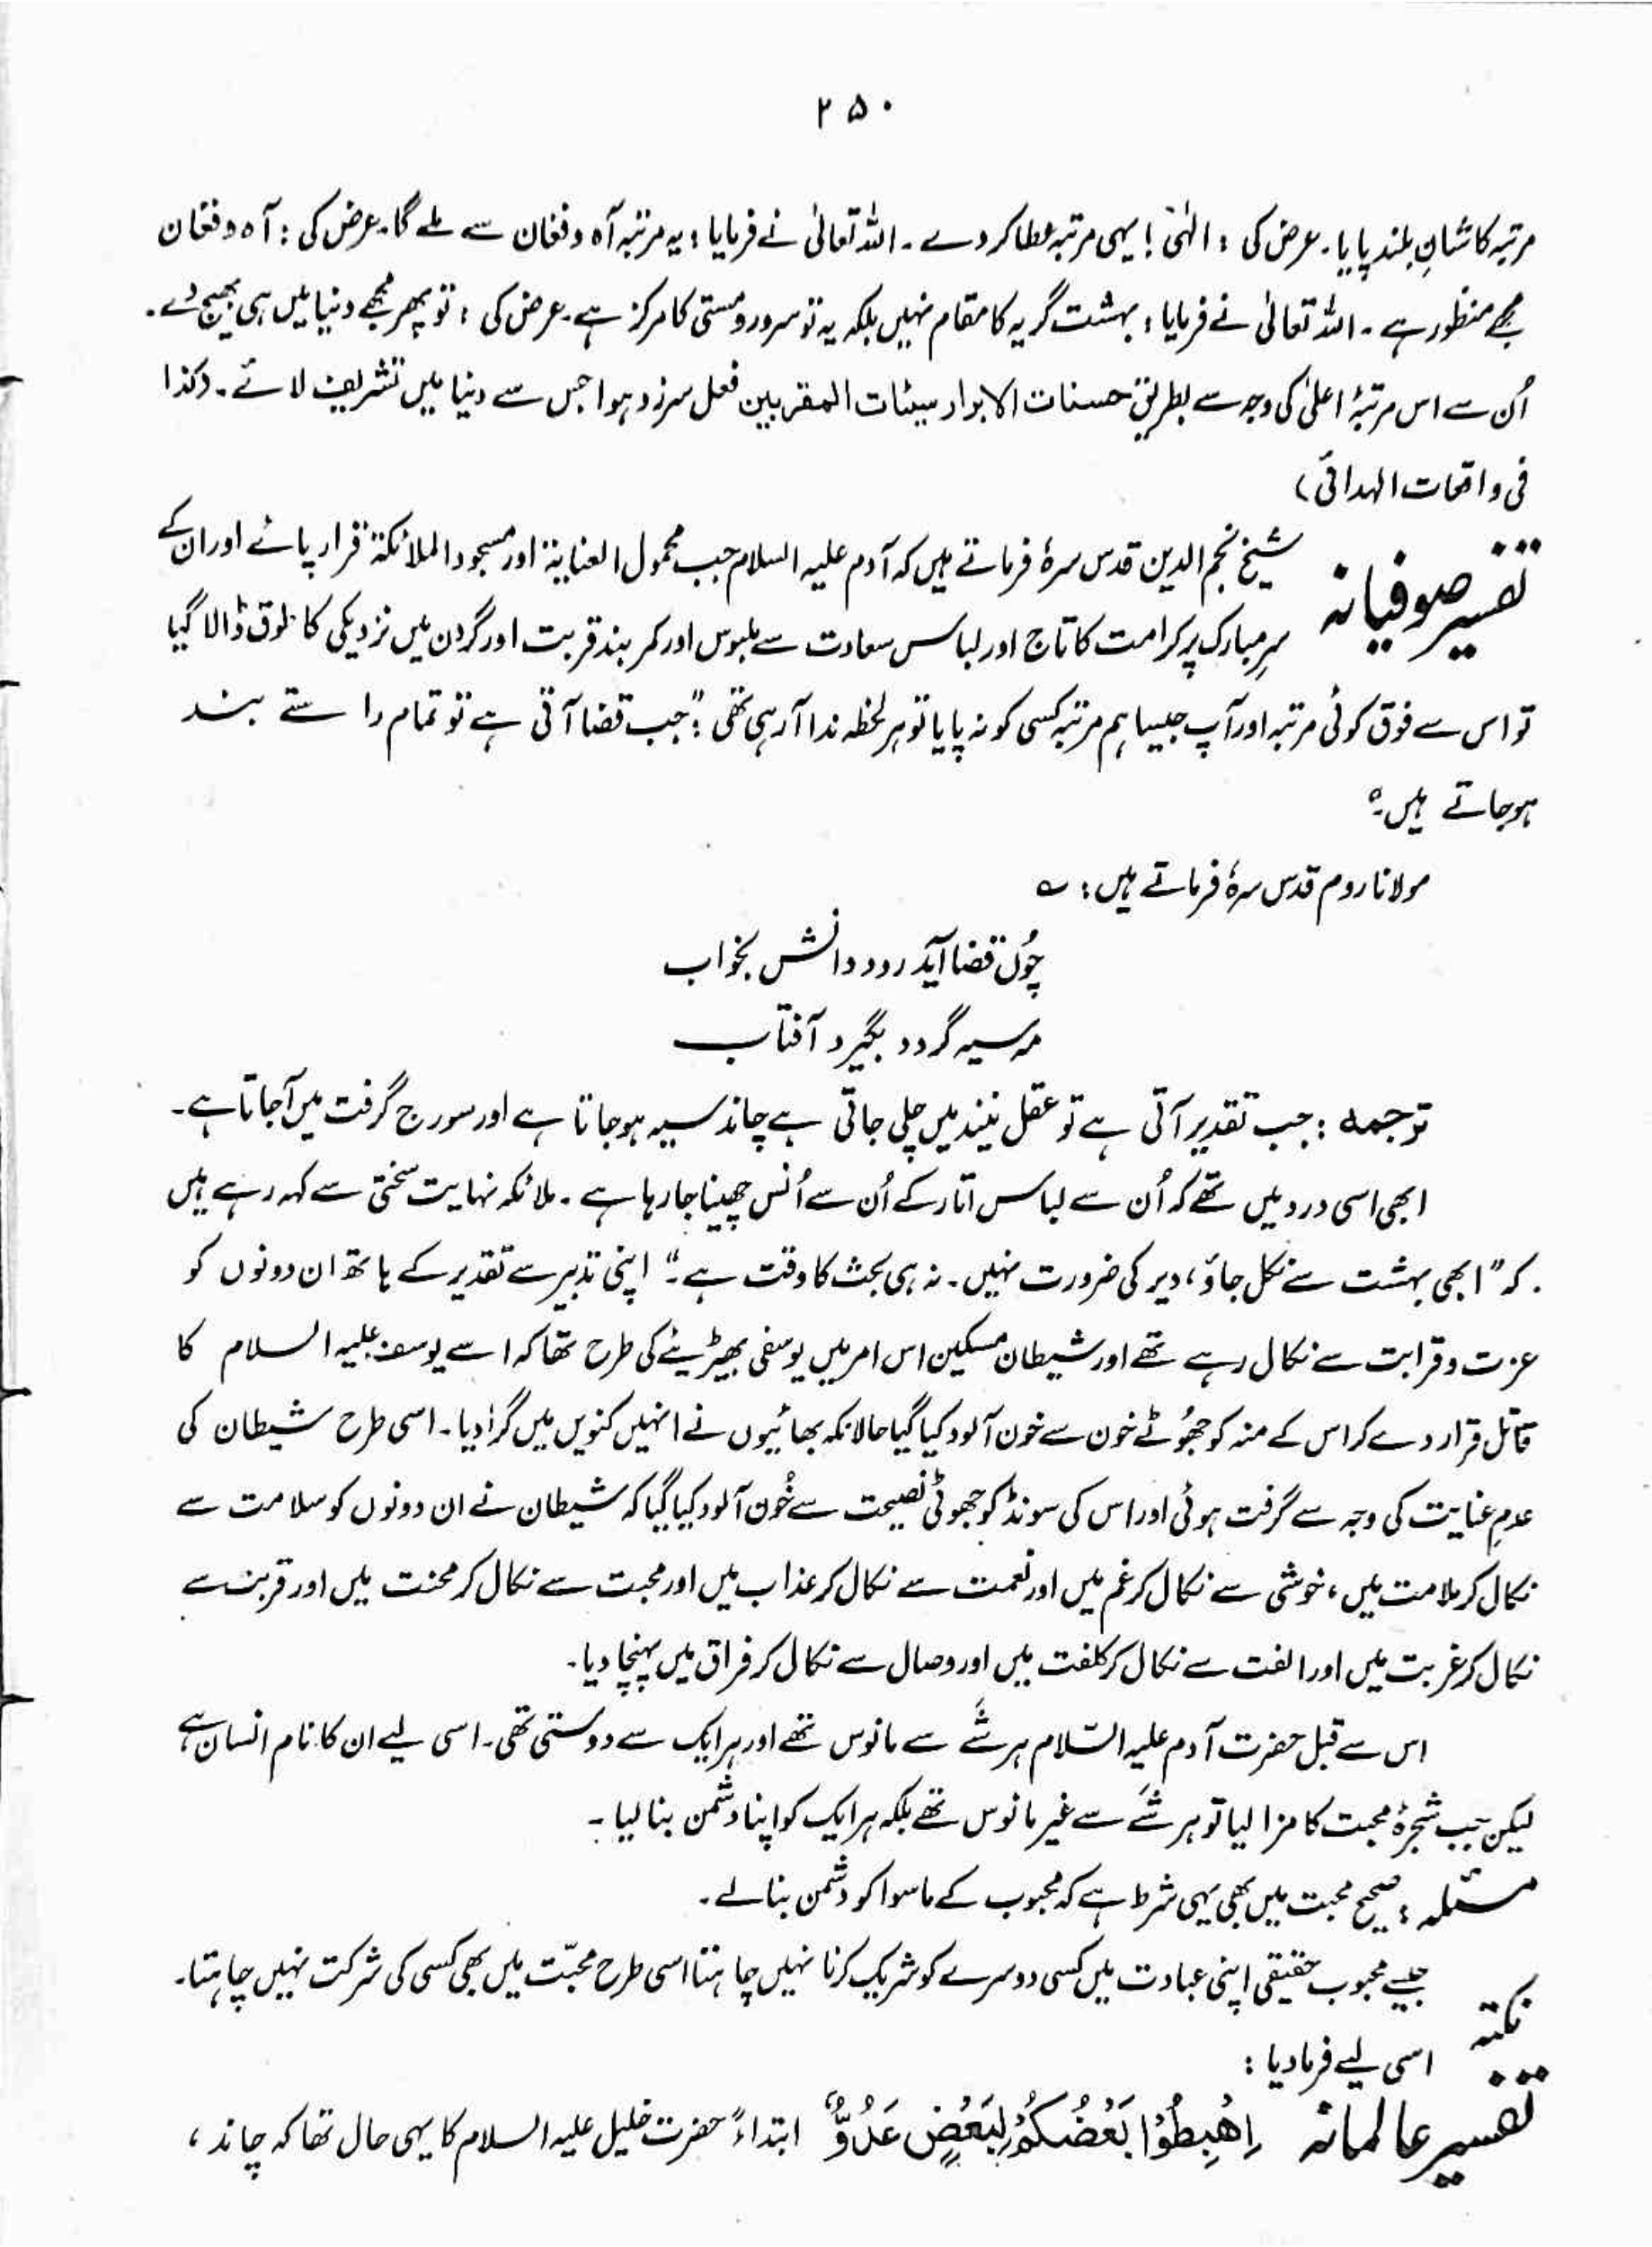 ۲۵۰
مرتبہ کا شانِ بلند پایا۔ عرض کی : الٰہی ! یہی مرتبہ عطا کر دے ۔ اللہ تعالیٰ نے فرمایا : یہ مرتبہ آہ و فغان سے ملے گا۔ عرض کی : آہ و فغان
مجھے منظور ہے ۔ اللہ تعالیٰ نے فرمایا : بہشت گریہ کا مقام نہیں بلکہ یہ تو سرور و مستی کا مرکز ہے۔ عرض کی : تو پھر مجھے دنیا میں ہی بھیج دے۔
اُن سے اس مرتبۂ اعلیٰ کی وجہ سے بطریق حسنات الابرار سیئات المقربین فعل سرزد ہوا جس سے دنیا میں تشریف لائے ۔ (کذا
فی واقعات الہدائی)
تفسیر صوفیانہ شیخ نجم الدین قدس سرہٗ فرماتے ہیں کہ آدم علیہ السلام جب محمول العنایۃ اور مسجود الملائکۃ قرار پائے اور ان کے
سرِ مبارک پر کرامت کا تاج اور لباس سعادت سے ملبوس اور کمر بند قربت اور گردن میں نزدیکی کا طوق ڈالا گیا
تو اس سے فوق کوئی مرتبہ اور آپ جیسا ہم مرتبہ کسی کو نہ پایا تو ہر لحظہ ندا آ رہی تھی : "جب قضا آتی ہے تو تمام راستے بند
ہو جاتے ہیں۔"
مولانا روم قدس سرہٗ فرماتے ہیں : ؎
چُوں قضا آید رود دانش بخواب
مہ سیہ گردد بگیرد آفتاب
ترجمہ : جب تقدیر آتی ہے تو عقل نیند میں چلی جاتی ہے چاند سیہ ہو جاتا ہے اور سورج گرفت میں آجاتا ہے۔
ابھی اسی درد میں تھے کہ اُن سے لباس اتار کے اُن سے اُنس چھینا جا رہا ہے ۔ ملائکہ نہایت سختی سے کہہ رہے ہیں
کہ "ابھی بہشت سے نکل جاؤ، دیر کی ضرورت نہیں ۔ نہ ہی بحث کا وقت ہے ۔" اپنی تدبیر سے تقدیر کے ہاتھ ان دونوں کو
عزت و قرابت سے نکال رہے تھے اور شیطان مسکین اس امر میں یوسفی بھیڑیئے کی طرح تھا کہ اسے یوسف علیہ السلام کا
قاتل قرار دے کر اس کے منہ کو جھُوٹے خون سے خون آلود کیا گیا حالانکہ بھائیوں نے انہیں کنویں میں گرا دیا۔ اسی طرح شیطان کی
عدم عنایت کی وجہ سے گرفت ہوئی اور اس کی سونڈ کو جھوٹی نصیحت سے خُون آلود کیا گیا کہ شیطان نے ان دونوں کو سلامت سے
نکال کر ملامت میں، خوشی سے نکال کر غم میں اور نعمت سے نکال کر عذاب میں اور محبت سے نکال کر محنت میں اور قربت سے
نکال کر غربت میں اور الفت سے نکال کر کلفت میں اور وصال سے نکال کر فراق میں پہنچا دیا۔
اس سے قبل حضرت آدم علیہ السّلام ہر شَے سے مانوس تھے اور ہر ایک سے دوستی تھی۔ اسی لیے ان کا نام انسان ہے
لیکن جب شجرۂ محبت کا مزا لیا تو ہر شَے سے غیر مانوس تھے بلکہ ہر ایک کو اپنا دشمن بنا لیا ۔
مسئلہ : صحیح محبت میں بھی یہی شرط ہے کہ محبوب کے ماسوا کو دشمن بنالے ۔
نکتہ جیسے محبوب حقیقی اپنی عبادت میں کسی دوسرے کو شریک کرنا نہیں چاہتا اسی طرح محبّت میں بھی کسی کی شرکت نہیں چاہتا۔
اسی لیے فرما دیا :
تفسیر عالمانہ اِھْبِطُوْا بَعْضُکُمْ لِبَعْضٍ عَدُوٌّ ابتداءً حضرت خلیل علیہ السلام کا یہی حال تھا کہ چاند ،